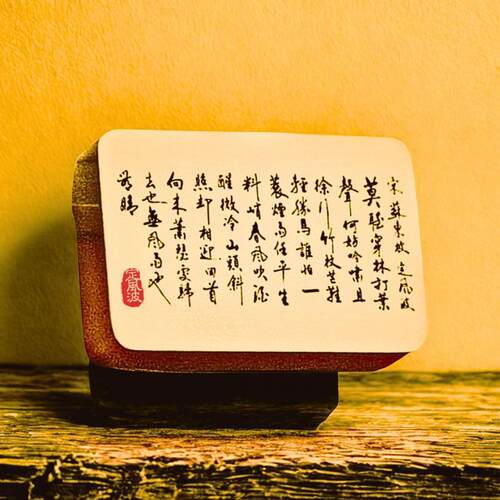 宋蘇東坡定風波
莫聽穿林打葉
聲何妨吟嘯且
徐行竹杖芒鞋
輕勝馬誰怕一
蓑煙雨任平生
料峭春風吹酒
醒微冷山頭斜
照却相迎回首
向来蕭瑟處歸
去也無風雨也
無晴
定風波